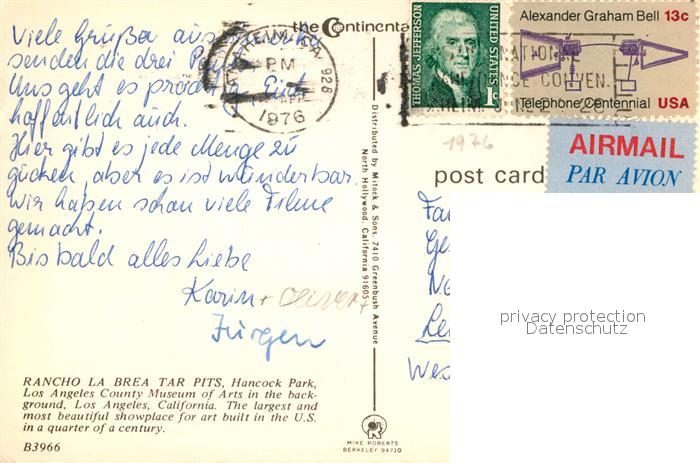 Viele Grüße aus Amerika
senden die drei
Uns geht es prod Euch
hoffentlich auch.
Hier gibt es jede Menge zu
gucken, aber es ist wunderbar.
Wir haben schon viele Filme
gemacht.
Bis bald alles Liebe
Karin + Oliver +
Jürgen
RANCHO LA BREA TAR PITS, Hancock Park,
Los Angeles County Museum of Arts in the back-
ground, Los Angeles, California. The largest and
most beautiful showplace for art built in the U.S.
in a quarter of a century.
B3966
the Continenta
ANAHEIM, CA 928
PM
APR
1976
Distributed by Mitock & Sons, 7410 Greenbush Avenue
North Hollywood, California 91605
MIKE ROBERTS
BERKELEY 94710
THOMAS JEFFERSON
UNITED STATES
1c
Alexander Graham Bell 13c
Telephone Centennial USA
1976
AIRMAIL
PAR AVION
post card
Fa
Ge
No
Le
Wes
privacy protection
Datenschutz